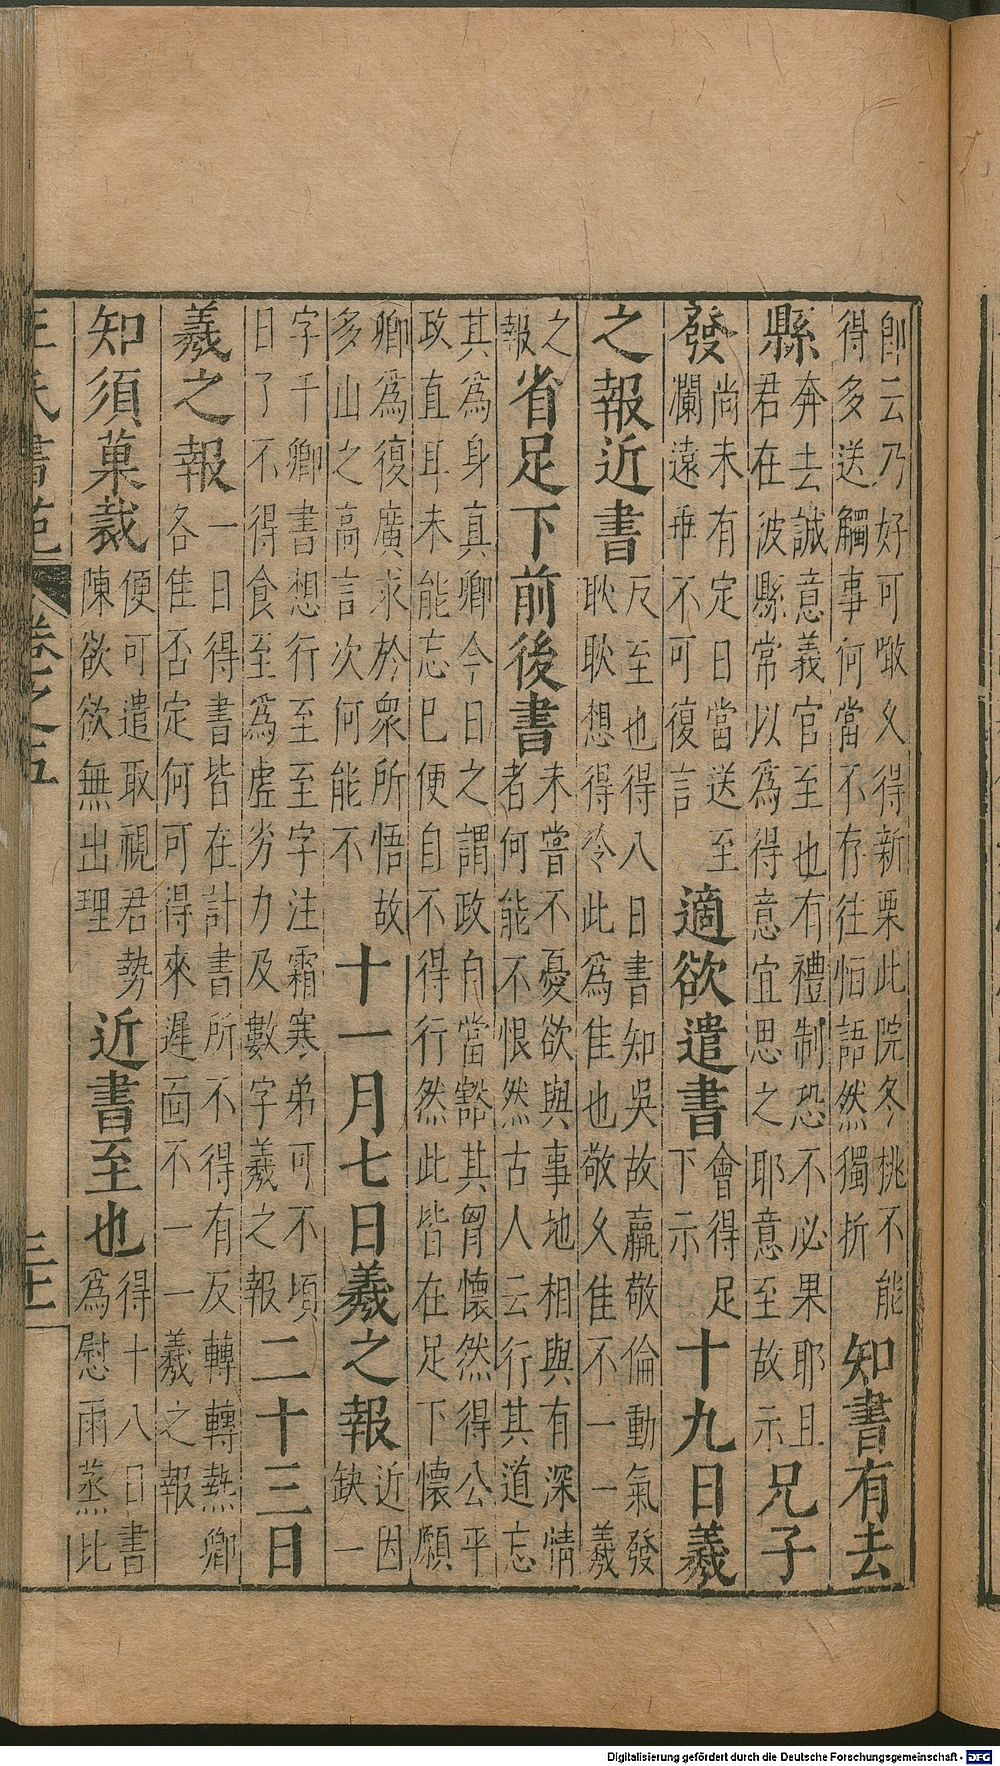 即云乃好可噉久得新栗此院冬桃不能
得多送觸事何當不存往恒語然獨折
知書有去
縣
奔去誠意義官至也有禮制恐不必果耶且
君在彼縣常以為得意宜思之耶意至故示
兄子
發
尚未有定日當送至
瀾遠垂不可復言
適欲遣書
會得足
下示
十九日羲
之報近書
反至也得八日書知吳故羸敬倫動氣發
耿耿想得冷此為佳也敬久佳不一一羲
之
報
省足下前後書
未嘗不憂欲與事地相與有深情
者何能不恨然古人云行其道忘
其為身真卿今日之謂政自當豁其胷懷然得公平
政直耳未能忘已便自不得行然此皆在足下懷願
卿為復廣求於衆所悟故
多山之高言次何能不
十一月七日羲之報
近因
缺一
字千卿書想行至至字注霜寒弟可不頃
日了不得食至為虛劣力及數字羲之報
二十三日
羲之報
一日得書皆在計書所不得有反轉轉熱卿
各佳否定何可得來遲面不一一羲之報
知須菓栽
便可遣取視君勢
陳欲欲無出理
近書至也
得十八日書
為慰雨蒸比
王氏書苑
卷之五
Digitalisierung gefördert durch die Deutsche Forschungsgemeinschaft - DFG